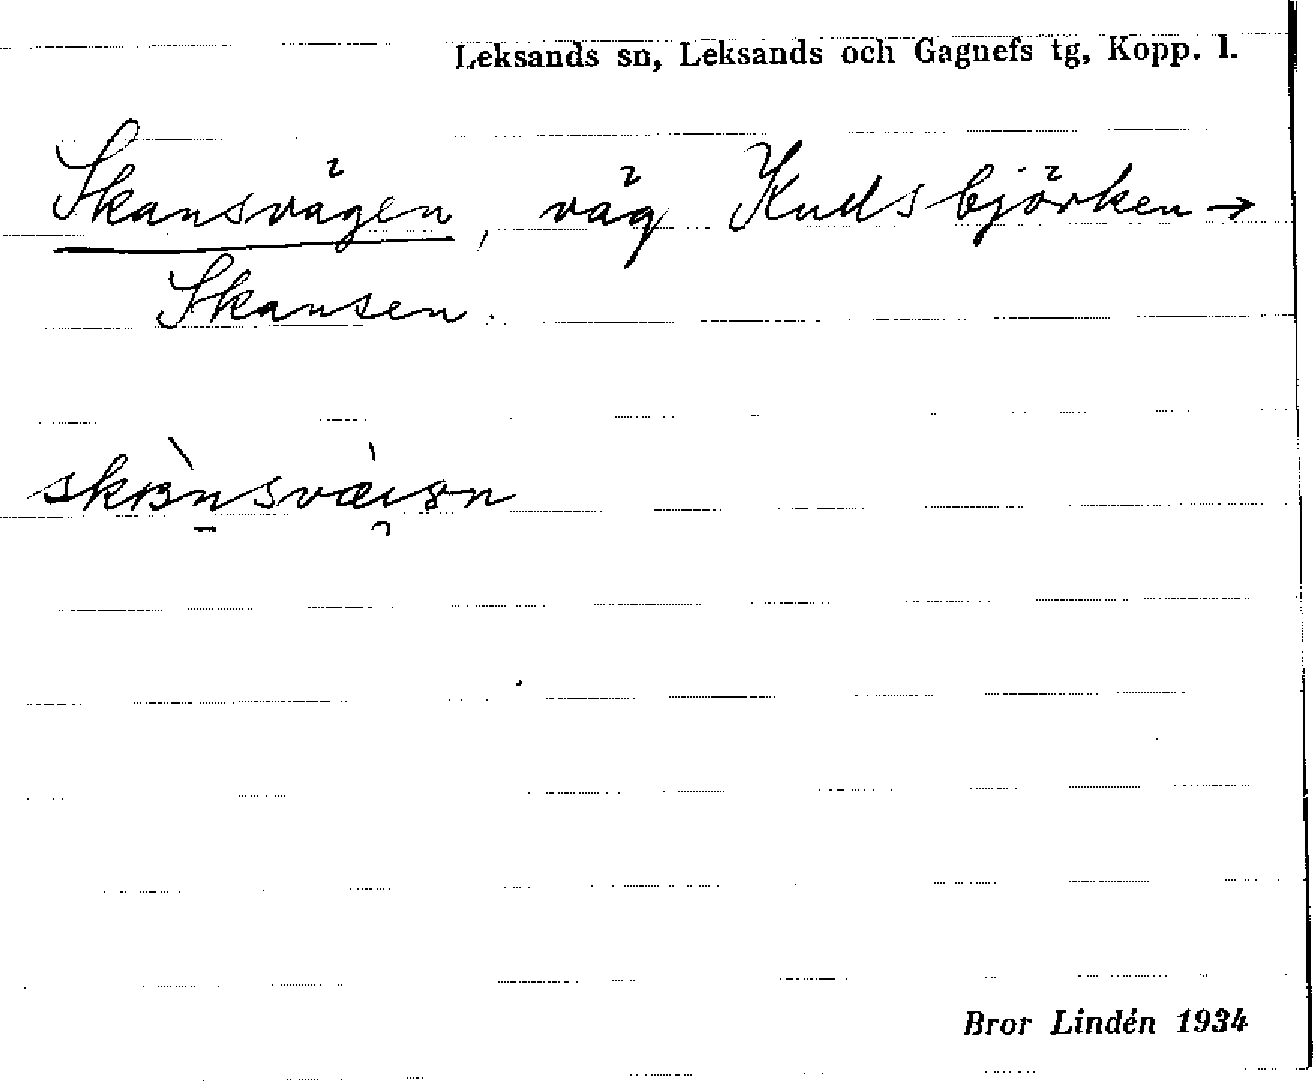 Leksands sn, Leksands och Gagnefs tg, Kopp. l.
Skansvägen, väg Knuts björken →
Skansen.
Bror Lindén 1934